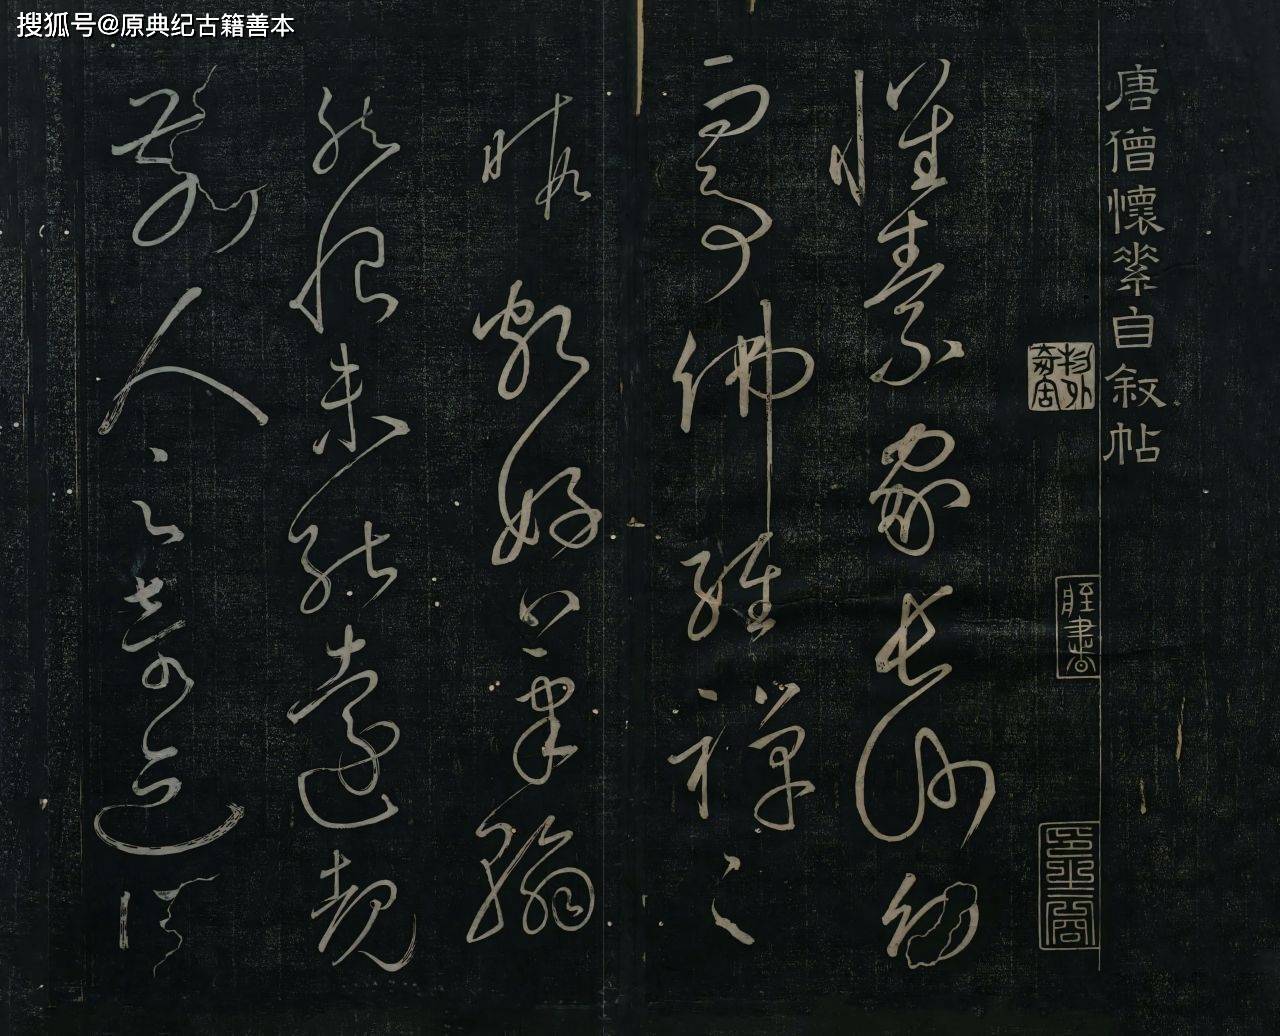 搜狐号@原典纪古籍善本
唐僧懷素自叙帖
懷素家長沙幼
而事佛經禪之
暇頗好筆翰
然恨未能遠覩
前人之奇迹